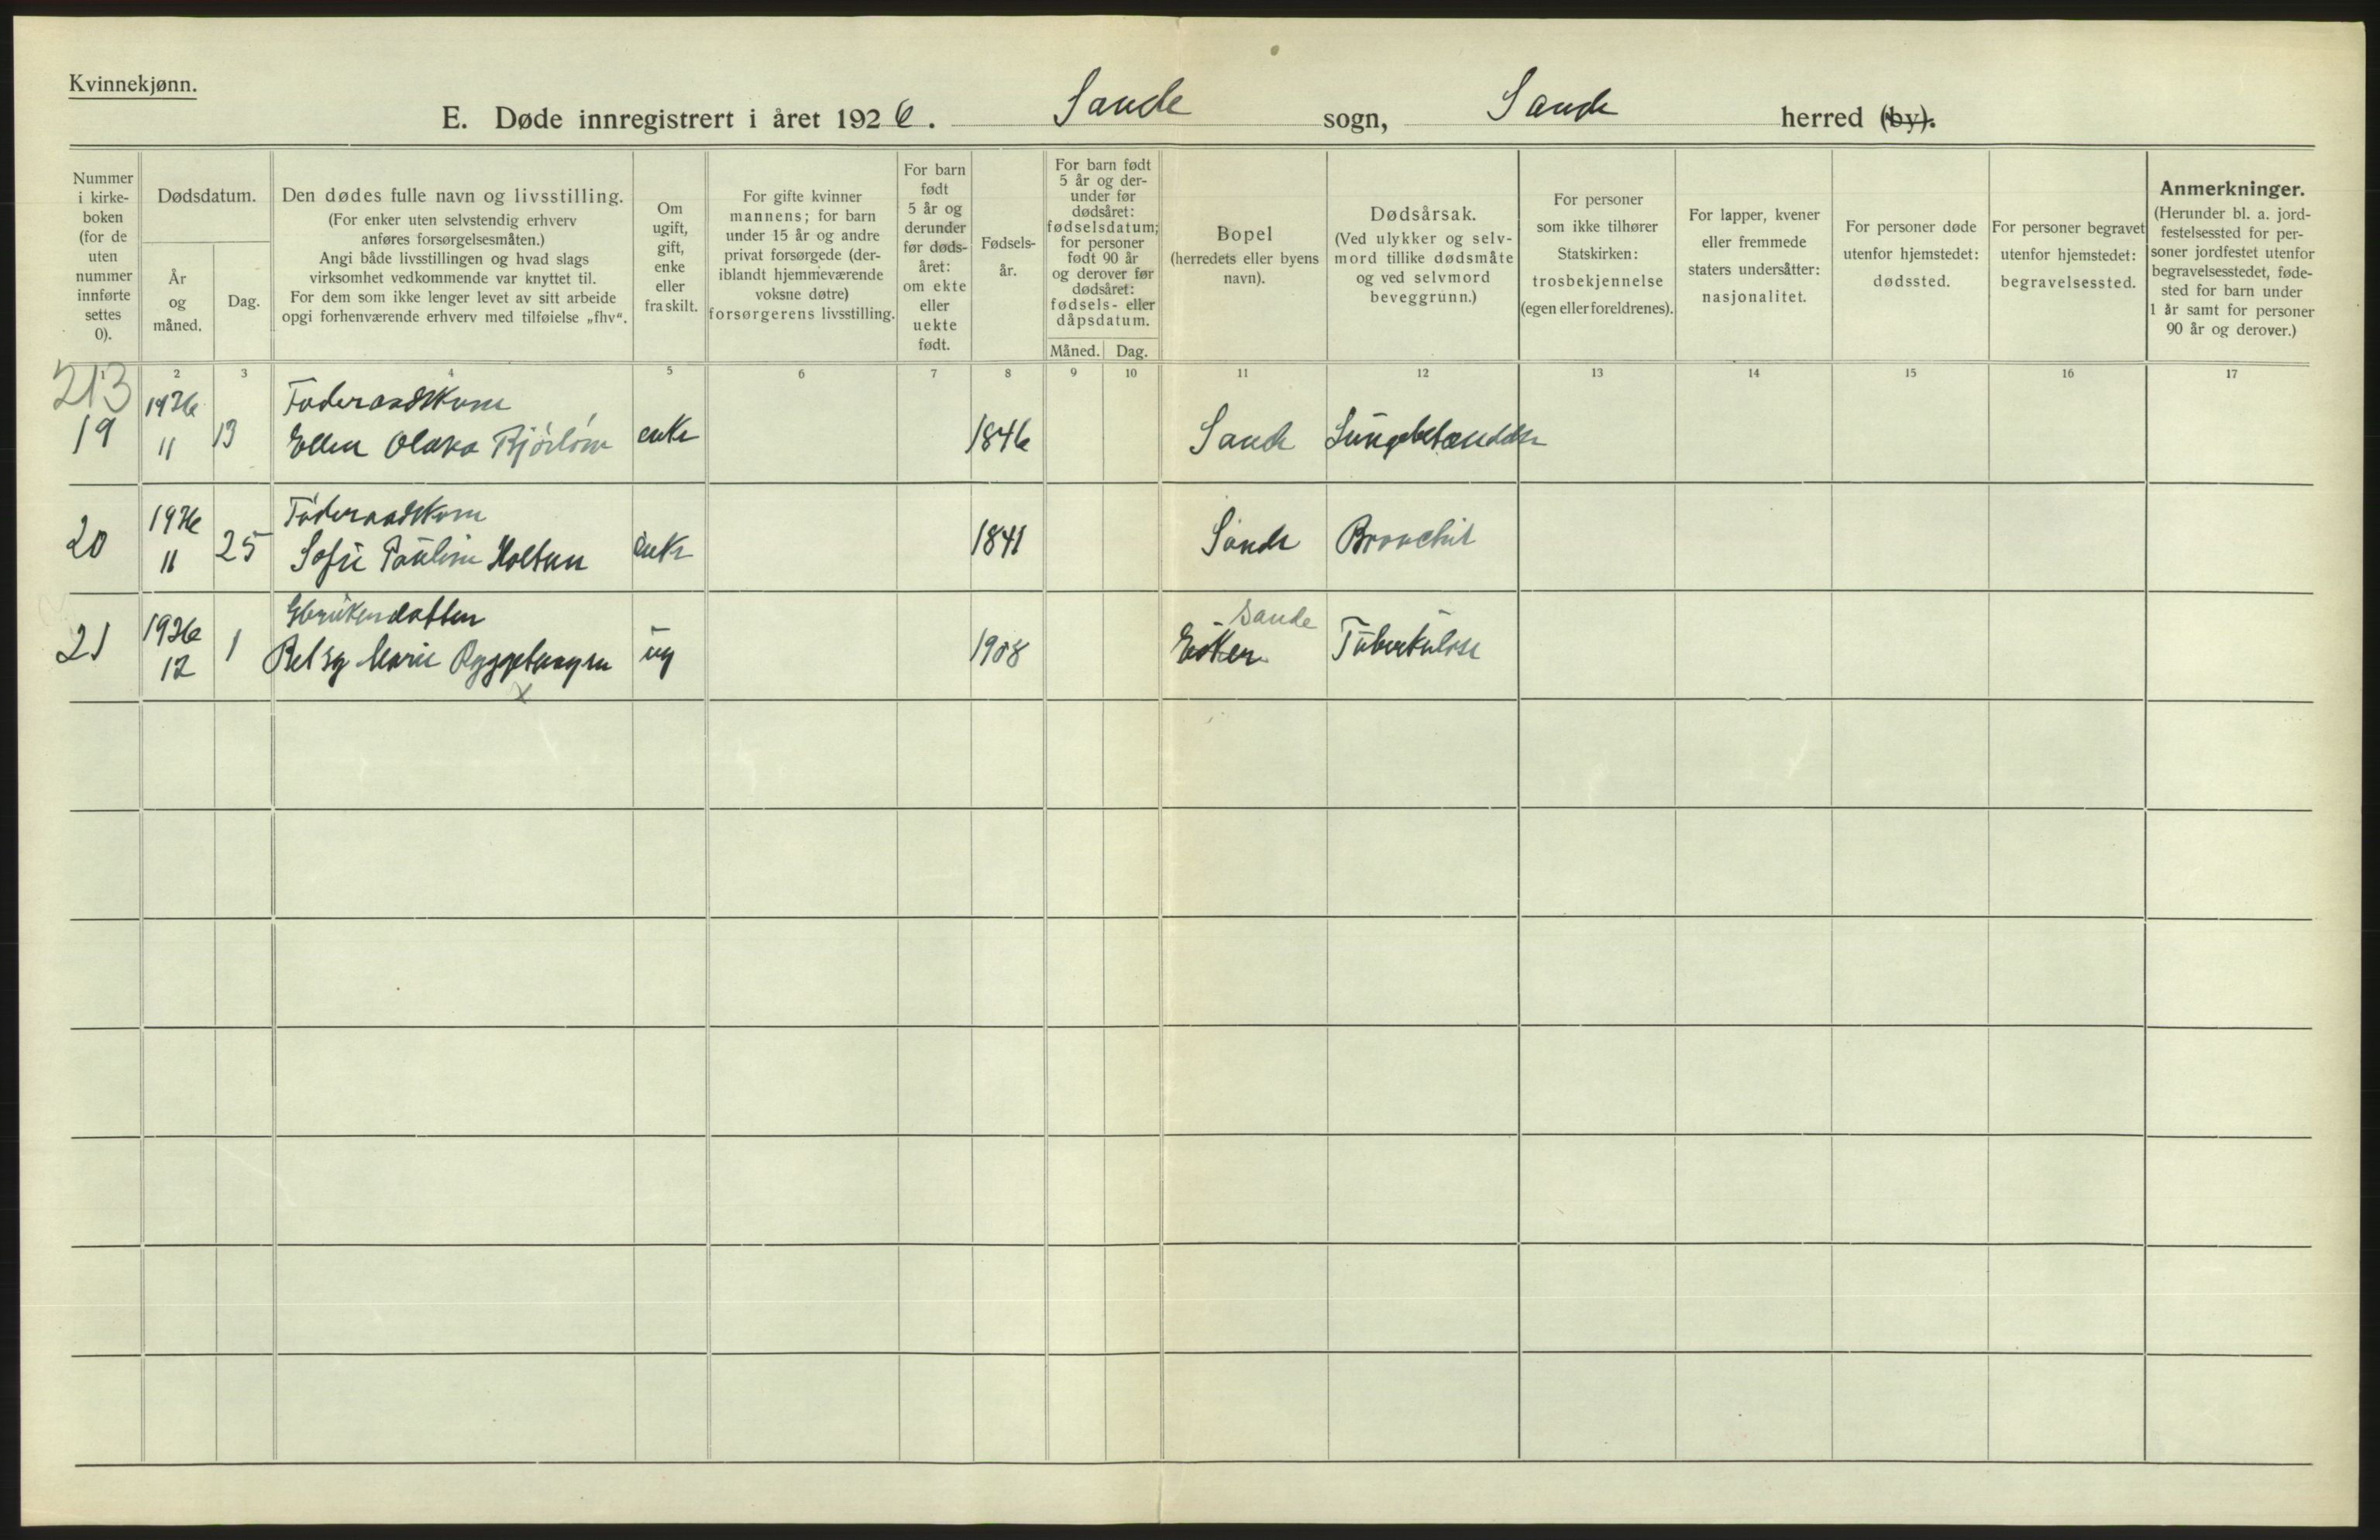 Kvinnekjønn.
E. Døde innregistrert i året 1926. Sande sogn, Sande herred (by).
Nummer i kirke-boken (for de uten nummer innførte settes 0).
Dødsdatum.
År og måned.
Dag.
Den dødes fulle navn og livsstilling.
(For enker uten selvstendig erhverv
anføres forsørgelsesmåten.)
Angi både livsstillingen og hvad slags
virksomhet vedkommende var knyttet til.
For dem som ikke lenger levet av sitt arbeide
opgi forhenværende erhverv med tilføielse „fhv“.
Om
ugift,
gift,
enke
eller
fraskilt.
For gifte kvinner
mannens; for barn
under 15 år og andre
privat forsørgede (der-
iblandt hjemmeværende
voksne døtre)
forsørgerens livsstilling.
For barn
født
5 år og
derunder
før døds-
året:
om ekte
eller
uekte
født.
Fødsels-
år.
For barn født
5 år og der-
under før
dødsåret:
fødselsdatum;
for personer
født 90 år
og derover før
dødsåret:
fødsels- eller
dåpsdatum.
Måned.
Dag.
Bopel
(herredets eller byens
navn).
Dødsårsak.
(Ved ulykker og selv-
mord tillike dødsmåte
og ved selvmord
beveggrunn.)
For personer
som ikke tilhører
Statskirken:
trosbekjennelse
(egen eller foreldrenes).
For lapper, kvener
eller fremmede
staters undersåtter:
nasjonalitet.
For personer døde
utenfor hjemstedet:
dødssted.
For personer begravet
utenfor hjemstedet:
begravelsessted.
Anmerkninger.
(Herunder bl. a. jord-
festelsessted for per-
soner jordfestet utenfor
begravelsesstedet, føde-
sted for barn under
1 år samt for personer
90 år og derover.)
1 2 3 4 5 6 7 8 9 10 11 12 13 14 15 16 17
213
1926 Føderaadskone
19 11 13 Ellen Olava enke 1846 Sande Lungebetændelse
1926 Føderaadskone
20 11 25 Sofie Pauline Holtan enke 1841 Sande Bronchit
1926 Gbrukerdatter Sande
21 12 1 Betsy Marie ug 1908 Eiker Tuberkulose
x